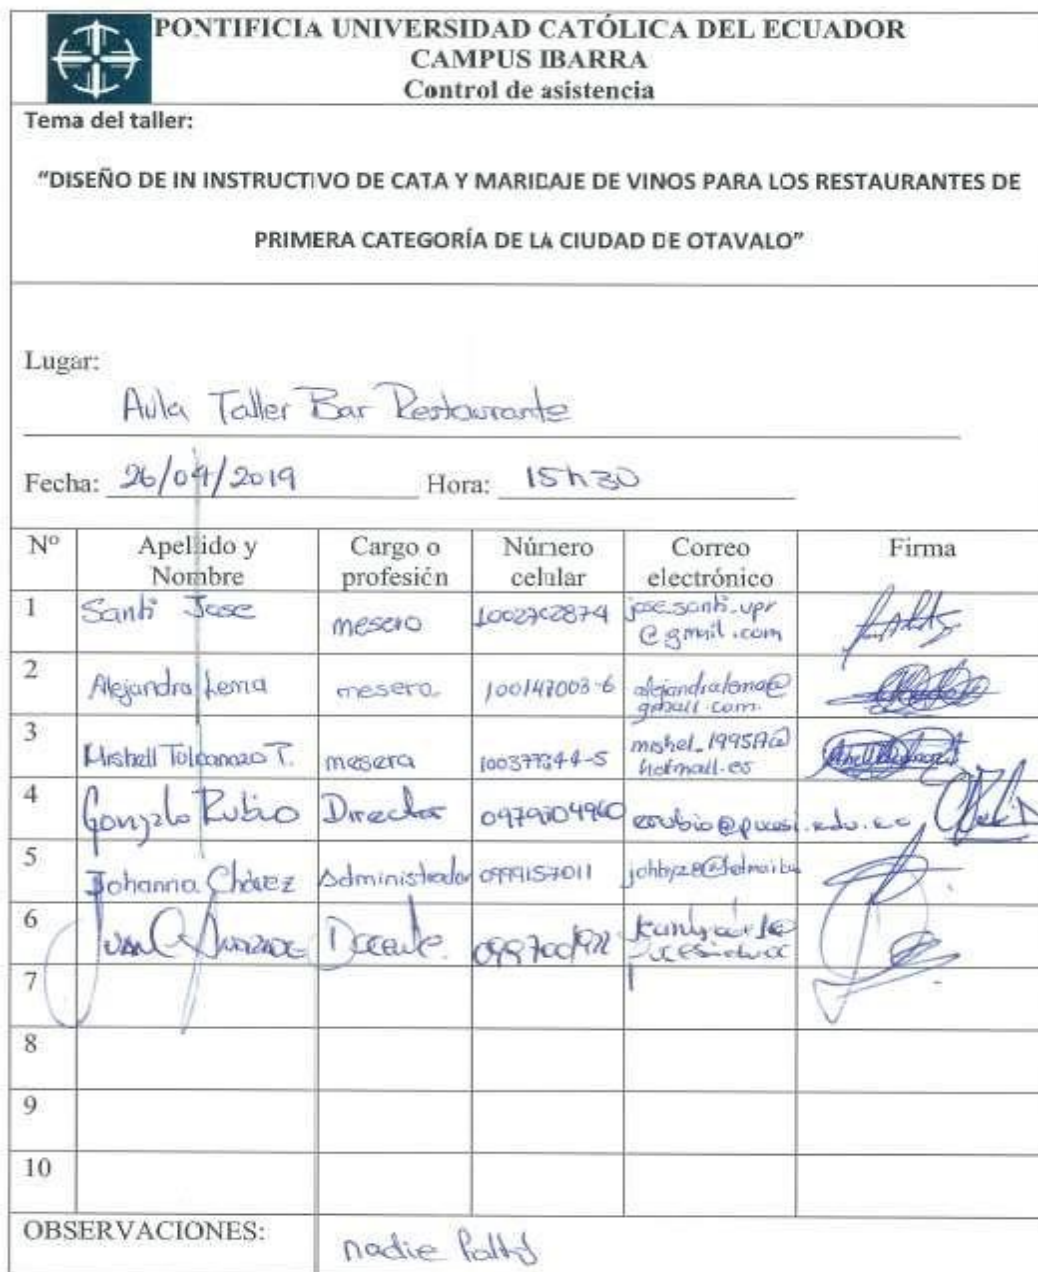 PONTIFICIA UNIVERSIDAD CATÓLICA DEL ECUADOR
CAMPUS IBARRA
Control de asistencia
Tema del taller:
"DISEÑO DE IN INSTRUCTIVO DE CATA Y MARIDAJE DE VINOS PARA LOS RESTAURANTES DE
PRIMERA CATEGORÍA DE LA CIUDAD DE OTAVALO"
Lugar:
Aula Taller Bar Restaurante
Fecha: 26/04/2019 Hora: 15h30
Nº Apellido y Nombre Cargo o profesión Número celular Correo electrónico Firma
1 Santi Jose mesero jose.santi-upr @gmail.com
2 Alejandra Lema mesera 100147003-6 alejandralema@ gmail.com
3 Mishell T. mesera hotmail.es
4 Gonzalo Rubio Director
5 Johanna Chávez Administrador 0999157011
6 Juan Docente
7
8
9
10
OBSERVACIONES: nadie